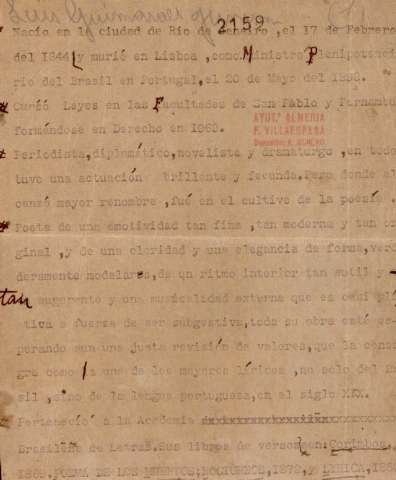 Luis Guimaraes
2159
Nacio en la ciudad de Rio de Janeiro ,el 17 de Febrero
del 1844 y murió en Lisboa ,como Ministro Plenipotencia
rio del Brasil en Portugal,el 20 de Mayo del 1898.
# Cursó Leyes en las Facultades de San Pablo y Pernambu
formándose en Derecho en 1962.
AYUNT. ALMERIA
F. VILLAESPESA
# Periodista,diplomático,novelista y dramaturgo ,en todo
tuvo una actuación brillante y fecunda.Pero donde al
canzó mayor renombre ,fué en el cultivo de la poesía .
# Poeta de una emotividad tan fina ,tan moderna y tan or
ginal ,y de una claridad y una elegancia de forma,verd
deramente modelares,de un ritmo interior tan sutil y
tan sugerente y una musicalidad externa que es casi plás
tiva a fuerza de ser subgestiva,toda su obra está es-
perando aun una justa revisión de valores,que la consa
gre como a una de los mayores líricos ,no solo del Bra
sil ,sino de la lengua portuguesa,en el siglo XIX.
# Perteneció a la Academia
Brasileña de Letras.Sus libros de versos son: Corimbos,
POEMA DE LOS MUERTOS,NOCTURNOS,1872, y LIRICA,